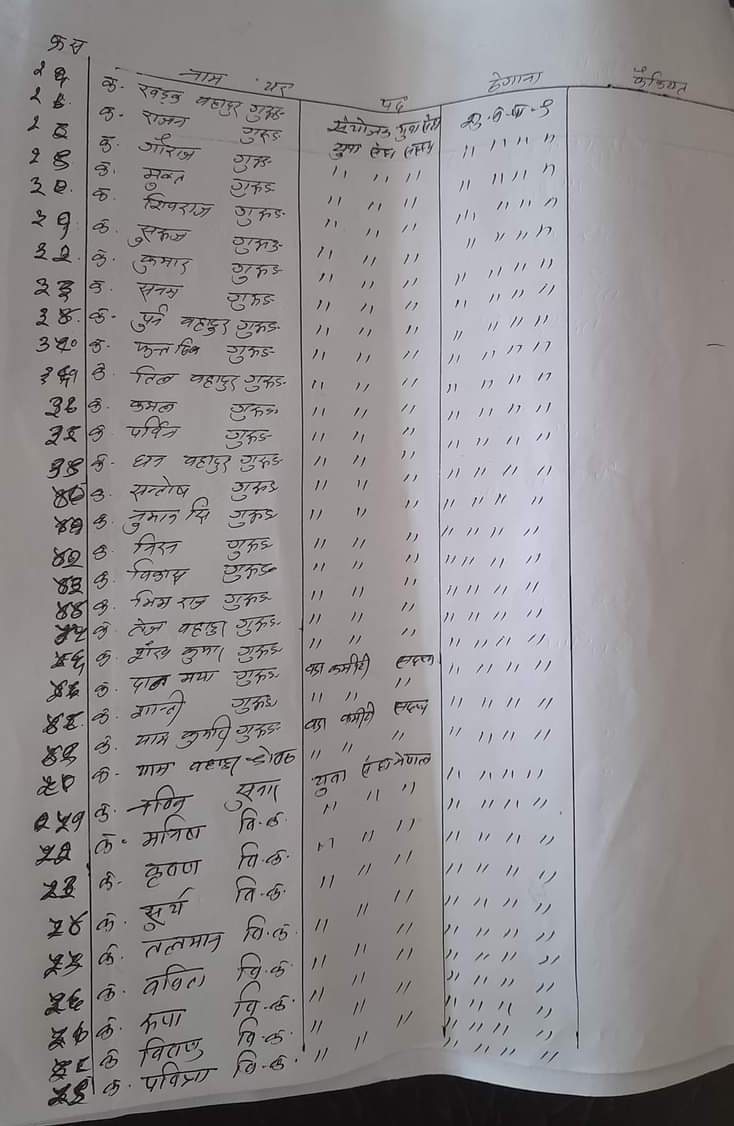 क्र स नाम थर पद ठेगाना कैफियत
२६ क. खड्क वहादुर गुरुङ संयोजक युवा
२७ क. राजन गुरुङ युवा सदस्य " " " "
२८ क. गौराज गुरुङ " " " " " " "
२९ क. मुक्त गुरुङ " " " " " " "
३० क. शिवराज गुरुङ " " " " " " "
३१ क. सुरुज गुरुङ " " " " " " "
३२ क. कुमार गुरुङ " " " " " " "
३३ क. सनम गुरुङ " " " " " " "
३४ क. पुर्न वहादुर गुरुङ " " " " " " "
३५ क. गुरुङ " " " " " " "
३६ क. तिल वहादुर गुरुङ " " " " " " "
३७ क. कमल गुरुङ " " " " " " "
३८ क. पर्वित गुरुङ " " " " " " "
३९ क. धन वहादुर गुरुङ " " " " " " "
४० क. सन्तोष गुरुङ " " " " " " "
४१ क. नुमान सि गुरुङ " " " " " " "
४२ क. गुरुङ " " " " " " "
४३ क. विकास गुरुङ " " " " " " "
४४ क. भिम राज गुरुङ " " " " " " "
४५ क. तेज वहादुर गुरुङ " " " " " " "
४६ क. गुरुङ वडा कमिटी सदस्य " " " "
४७ क. दान माया गुरुङ " " " " " " "
४८ क. शान्ती गुरुङ वडा कमिटी सदस्य " " " "
४९ क. याम कुमारी गुरुङ " " " " " " "
५० क. याम वहादुर युवा " " " "
५१ क. नविन सुनार " " " " " " "
५२ क. मनिषा वि.क. " " " " " " "
५३ क. कृष्ण वि.क. " " " " " " "
५४ क. सुर्य वि.क. " " " " " " "
५५ क. तलमान वि.क. " " " " " " "
५६ क. वविता वि.क. " " " " " " "
५७ क. रुपा वि.क. " " " " " " "
५८ क. वि.क. " " " " " " "
५९ क. पवित्रा वि.क. " " " " " " "